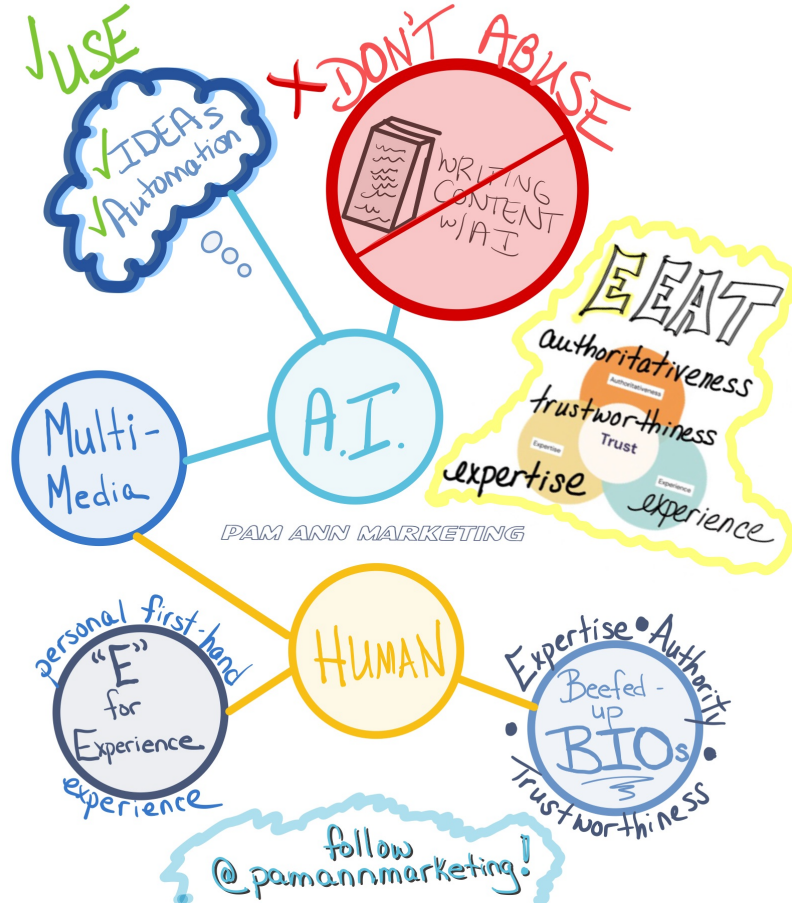 ✓USE
✓IDEAs
✓Automation
X DON'T ABUSE
WRITING
CONTENT
W/AI
EEAT
authoritativeness
Authoritativeness
trustworthiness
Trust
Expertise
expertise
Experience
experience
A.I.
Multi-
Media
PAM ANN MARKETING
HUMAN
personal first-hand
"E"
for
Experience
experience
Expertise • Authority •
Trustworthiness •
Beefed-
up
BIOs
follow
@pamannmarketing!